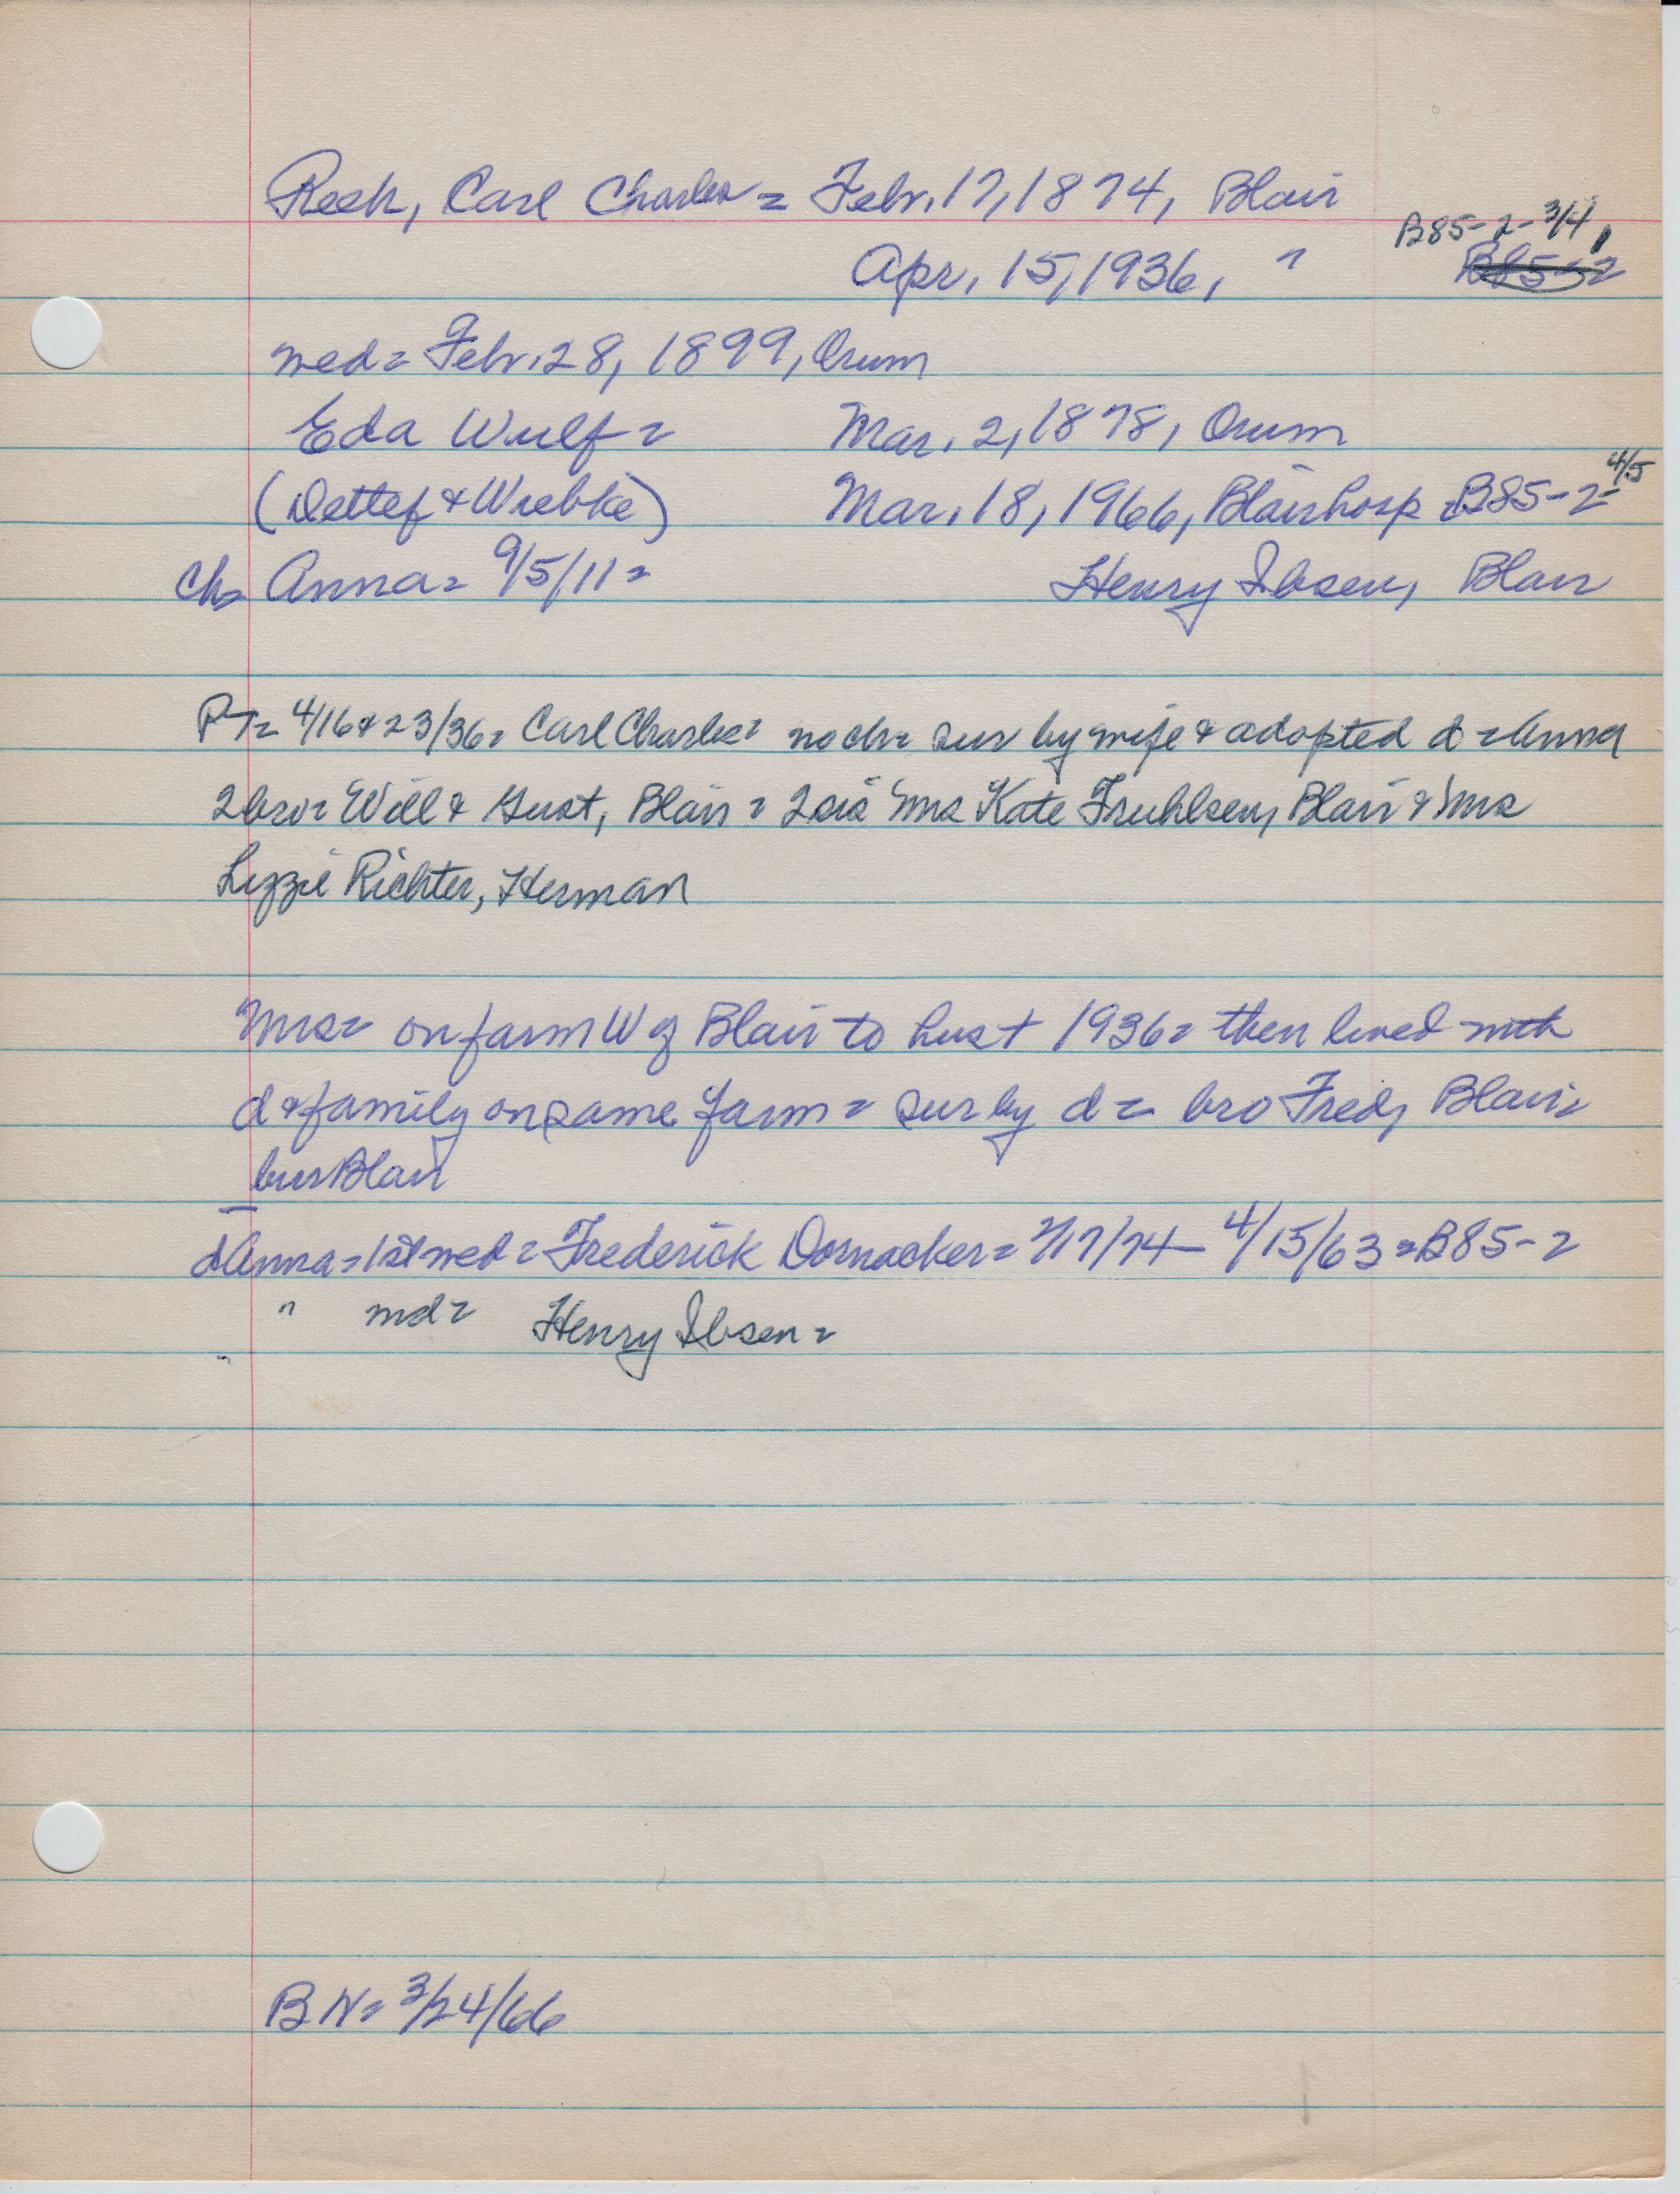 Reeh, Carl Charles = Febr. 17, 1874, Blair
B85-2-3/4,
Apr. 15, 1936, "
B85-2
med = Febr. 28, 1899, Orum
Eda Wulf = Mar. 2, 1878, Orum
(Detlef & Wiebke) Mar. 18, 1966, Blair hosp B85-2-4/5
ch = Anna = 9/5/11 = Henry Ibsen, Blair
PT = 4/16 & 23/36 = Carl Charles = no ch = sur by wife & adopted d = Anna
2 bro = Will & Gust, Blair = 2 sis Mrs Kate Fruhlsen, Blair & Mrs
Lizzie Richter, Herman
Mrs = on farm W of Blair to hus + 1936 = then lived with
d & family on same farm = sur by d = bro Fred, Blair =
bur Blair
d Anna = 1st med = Frederick Dornacker = 7/17/74 - 4/15/63 = B85-2
" md = Henry Ibsen =
BN = 3/24/66